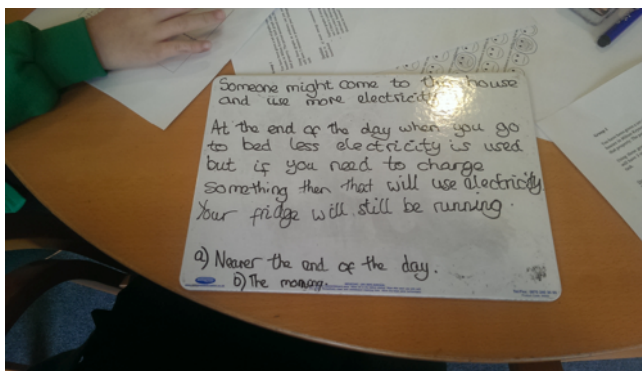 Someone might come to the house
and use more electricity
At the end of the day when you go
to bed less electricity is used
but if you need to charge
something then that will use electricity.
Your fridge will still be running.
a) Nearer the end of the day.
b) The morning.